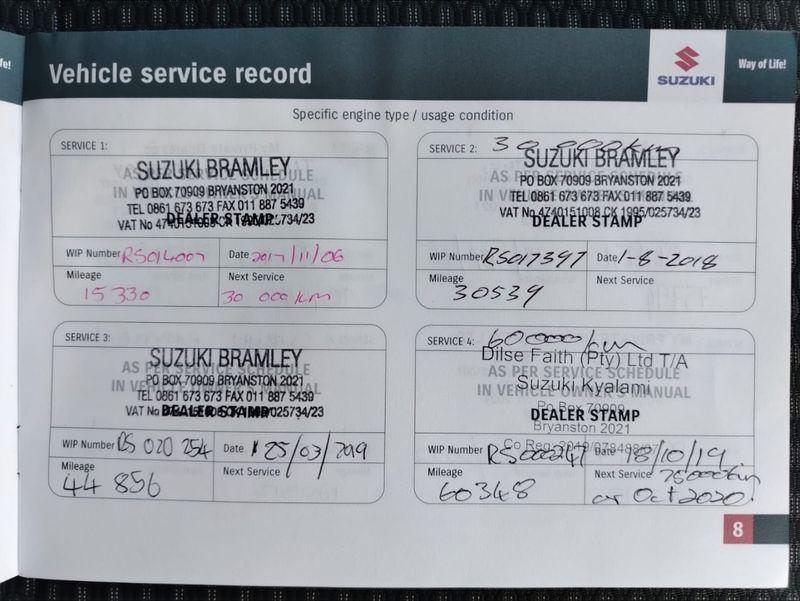 fe!
Vehicle service record
SUZUKI
Way of Life!
Specific engine type / usage condition
SERVICE 1:
SUZUKI BRAMLEY
AS PER SERVICE SCHEDULE
IN VEHICLE OWNER'S MANUAL
PO BOX 70909 BRYANSTON 2021
TEL 0861 673 673 FAX 011 887 5439
VAT No 4740151008 CK 1995/025734/23
DEALER STAMP
WIP Number RS014007 Date 2017/11/06
Mileage 15 330
Next Service 30 000 km
SERVICE 2: 30 000km
SUZUKI BRAMLEY
AS PER SERVICE SCHEDULE
IN VEHICLE OWNER'S MANUAL
PO BOX 70909 BRYANSTON 2021
TEL 0861 673 673 FAX 011 887 5439
VAT No 4740151008 CK 1995/025734/23
DEALER STAMP
WIP Number RS017397 Date 1-8-2018
Mileage 30539
Next Service
SERVICE 3:
SUZUKI BRAMLEY
AS PER SERVICE SCHEDULE
IN VEHICLE OWNER'S MANUAL
PO BOX 70909 BRYANSTON 2021
TEL 0861 673 673 FAX 011 887 5439
VAT No 4740151008 CK 1995/025734/23
DEALER STAMP
WIP Number RS 020 254 Date 25/03/2019
Mileage 44 856
Next Service
SERVICE 4: 60000/km
Dilse Faith (Pty) Ltd T/A
AS PER SERVICE SCHEDULE
Suzuki Kyalami
IN VEHICLE OWNER'S MANUAL
Po Box 70909
DEALER STAMP
Bryanston 2021
Co Reg:
WIP Number RS000247 Date 18/10/19
Mileage 60348
Next Service 75000km
or Oct 2020
8